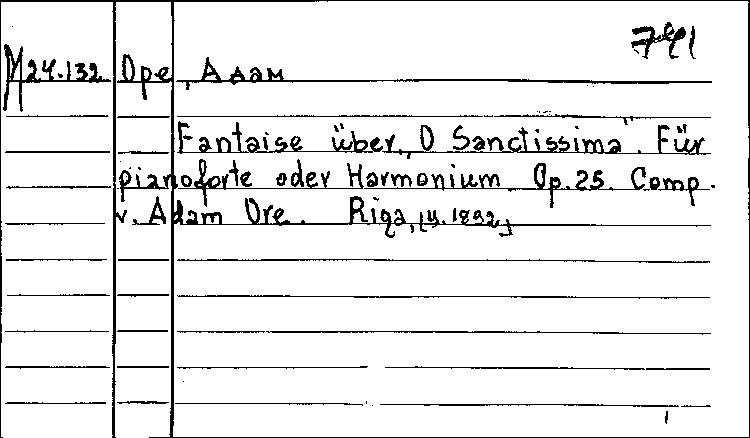 741
M 24.132 Оре, Адам
Fantaise über „O Sanctissima". Für
pianoforte oder Harmonium Op.25. Comp.
v. Adam Ore. Riga, [ц. 1892]